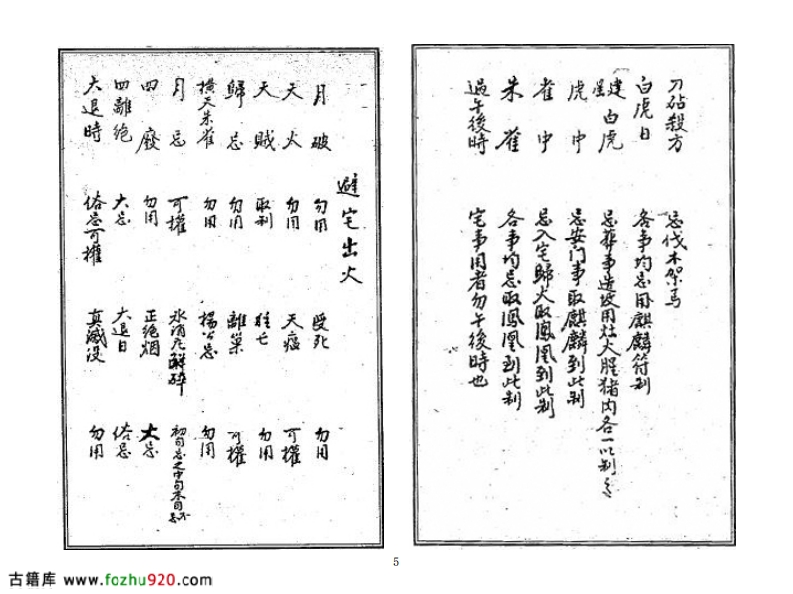 刀砧殺方 忌伐木架馬
白虎日 各事均忌用麒麟符制
建星 白虎 忌葬事造坟用灶火腥猪肉各一以制之
虎中 忌安门事取麒麟到此制
雀中 忌入宅歸火取鳳凰到此制
朱雀 各事均忌取鳳凰到此制
過午後時 宅事用者勿午後時也
避宅出火
月破 勿用 受死 勿用
天火 勿用 天瘟 可權
天賊 取制 勿用
歸忌 勿用 離巢 可權
横天朱雀 勿用 楊公忌 勿用
月忌 可權 氷消瓦解碎
四廢 勿用 正绝烟 大忌
四離絶 大忌 大退日 俗忌
大退時 俗忌可權 真滅没 勿用
5
古籍库 www.fozhu920.com